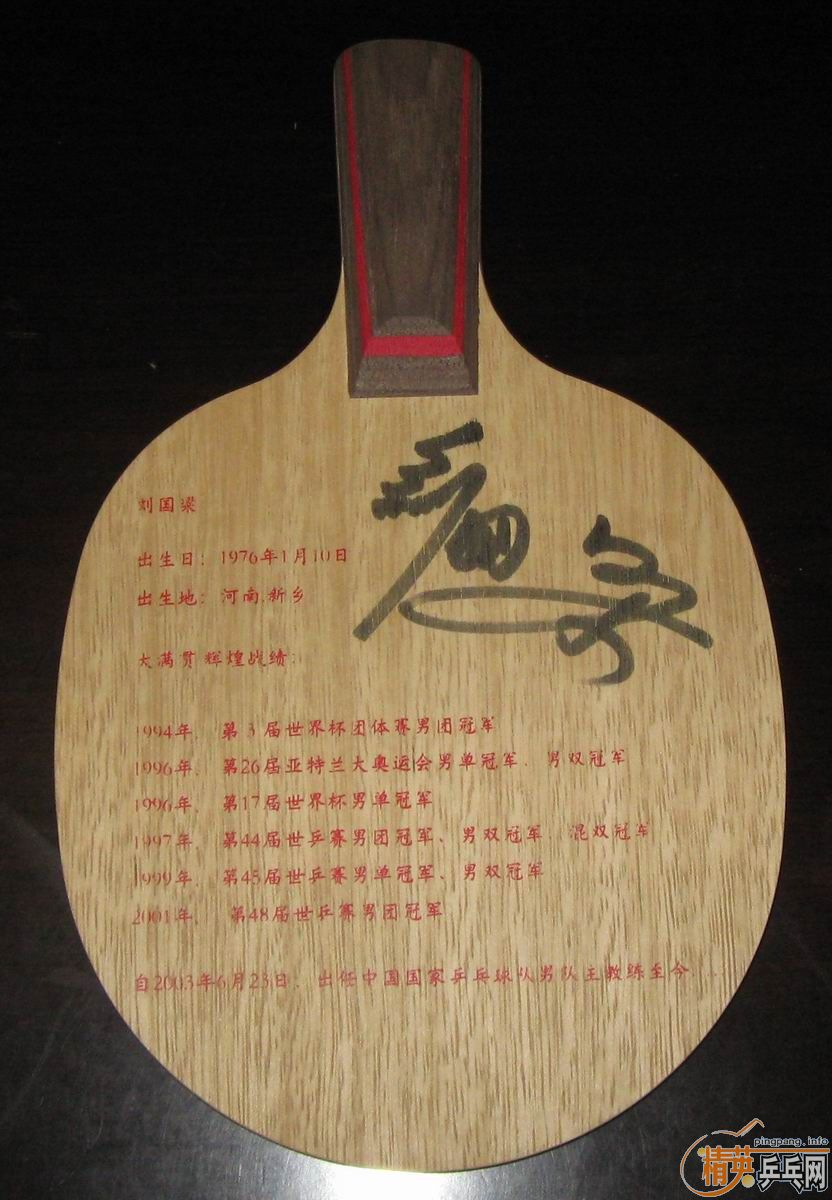 刘国梁
出生日：1976年1月10日
出生地：河南.新乡
大满贯辉煌战绩：
1994年．第3届世界杯团体赛男团冠军
1996年．第26届亚特兰大奥运会男单冠军．男双冠军
1996年．第17届世界杯男单冠军
1997年．第44届世乒赛男团冠军、男双冠军．混双冠军
1999年．第45届世乒赛男单冠军、男双冠军
2001年．第48届世乒赛男团冠军
自2003年6月23日．出任中国国家乒乓球队男队主教练至今....
pingpang.info
精英乒乓网